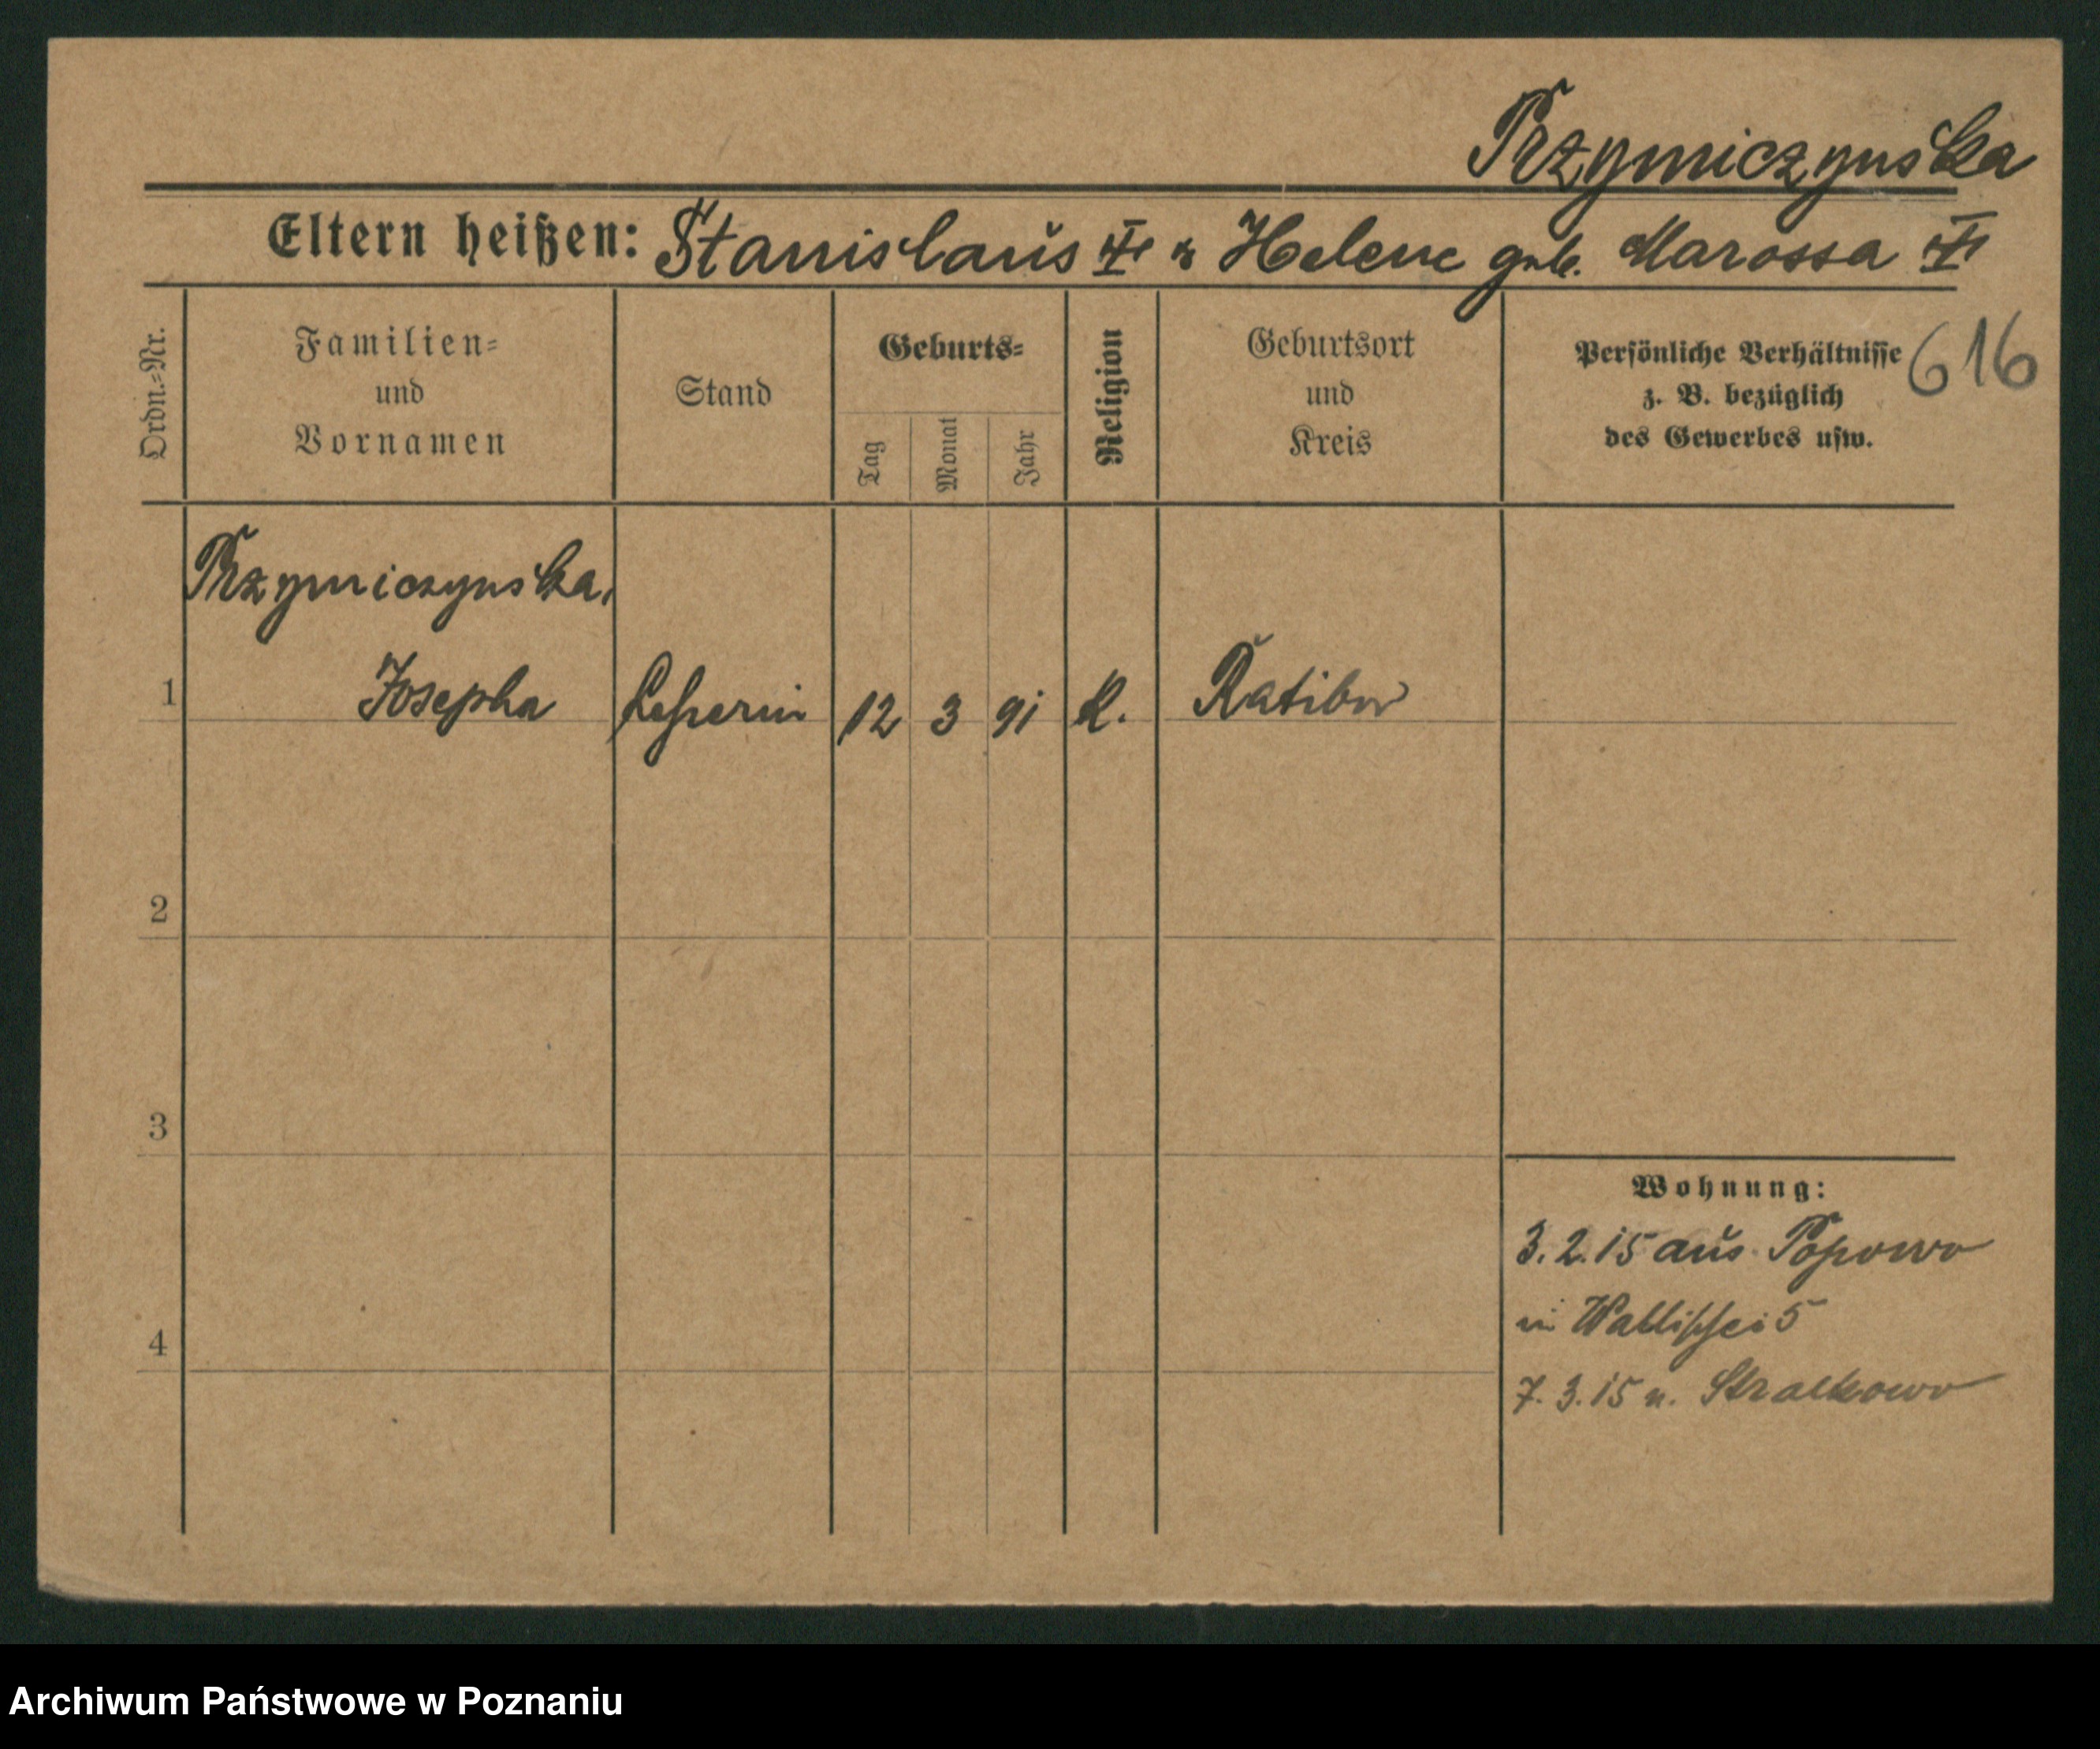 Przymiczynska
Eltern heißen: Stanislaus & Helene geb. Marossa
616
Ordn.-Nr.
Familien-
und
Vornamen
Stand
Geburts-
Tag
Monat
Jahr
Religion
Geburtsort
und
Kreis
Persönliche Verhältnisse
z. B. bezüglich
des Gewerbes usw.
Przymiczynska,
1 Josepha 12 3 91 K. Ratibor
2
3
Wohnung:
3.2.15 aus Popowo
in Wallischei 5
4
7.3.15 n. Stralkowo
Archiwum Państwowe w Poznaniu